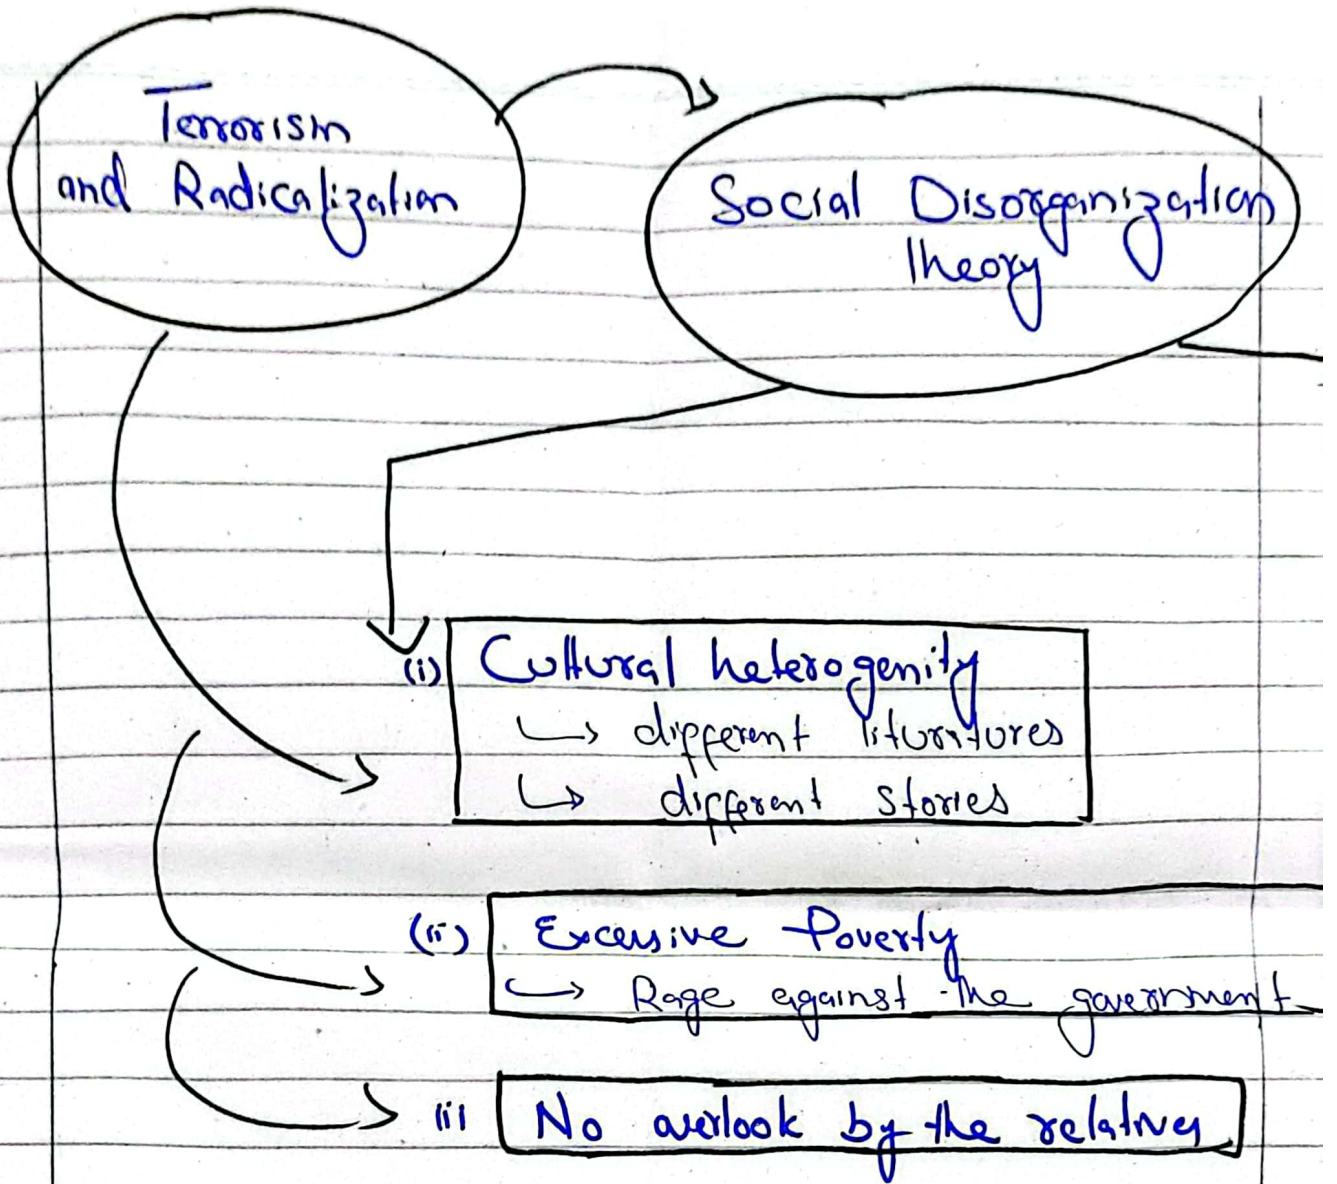 Terrorism
and Radicalization
Social Disorganization
Theory
(i) Cultural heterogenity
↳ different lituritures
↳ different stories
(ii) Excessive Poverty
↳ Rage against the government
(iii) No overlook by the relatives